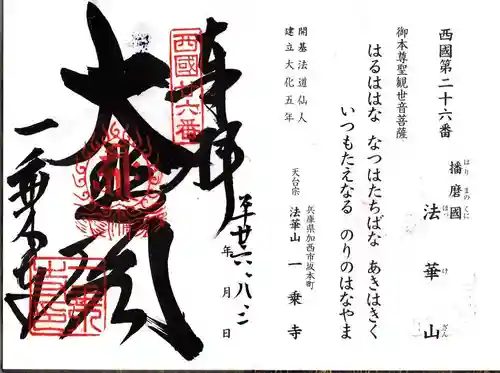 西國第二十六番
播磨國 法華山
はり まの くに ほっ け ざん
御本尊聖観世音菩薩
はるははな なつはたちばな あきはきく
いつもたえなる のりのはなやま
開基 法道仙人
建立 大化五年
兵庫県加西市坂本町
天台宗 法華山 一乗寺
奉拝
平廿六、八、二
年 月 日
西國廿六番
大悲閣
一乗寺